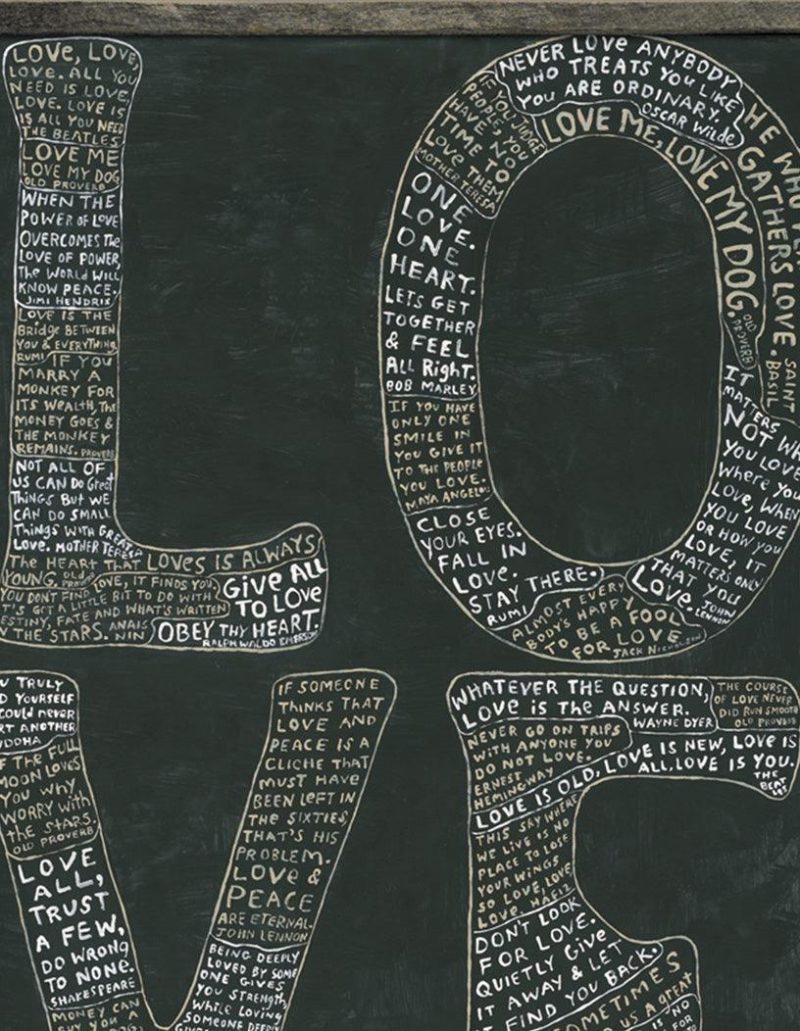 LOVE, LOVE,
LOVE. ALL YOU
NEED IS LOVE,
LOVE. LOVE IS
IS ALL YOU NEED
THE BEATLES
LOVE ME
LOVE MY DOG
OLD PROVERB
WHEN THE
POWER OF LOVE
OVERCOMES THE
LOVE OF POWER,
THE WORLD WILL
KNOW PEACE.
JIMI HENDRIX
LOVE IS THE
BRIDGE BETWEEN
YOU & EVERYTHING.
RUMI IF YOU
MARRY A
MONKEY FOR
ITS WEALTH, THE
MONEY GOES &
THE MONKEY
REMAINS. PROVERB
NOT ALL OF
US CAN DO GREAT
THINGS BUT WE
CAN DO SMALL
THINGS WITH GREAT
LOVE. MOTHER TERESA
THE HEART THAT LOVES IS ALWAYS
YOUNG. OLD PROVERB
LOVE, IT FINDS YOU,
YOU DON'T FIND
IT'S GOT A LITTLE BIT TO DO WITH
DESTINY, FATE AND WHAT'S WRITTEN
IN THE STARS. ANAIS
NIN
GIVE ALL
TO LOVE
OBEY THY HEART.
RALPH WALDO EMERSON
NEVER LOVE ANYBODY
WHO TREATS YOU LIKE
YOU ARE ORDINARY.
OSCAR WILDE
IF YOU JUDGE
PEOPLE, YOU
HAVE NO
TIME TO
LOVE THEM
MOTHER TERESA
LOVE ME, LOVE MY DOG.
OLD
PROVERB
HE WHO
GATHERS LOVE.
SAINT
BASIL
ONE
LOVE.
ONE
HEART.
LETS GET
TOGETHER
& FEEL
ALL RIGHT.
BOB MARLEY
IF YOU HAVE
ONLY ONE
SMILE IN
YOU GIVE IT
TO THE PEOPLE
YOU LOVE.
MAYA ANGELOU
CLOSE
YOUR EYES.
FALL IN
LOVE.
STAY THERE.
RUMI
ALMOST EVERY
BODY'S HAPPY
TO BE A FOOL
FOR LOVE
JACK NICHOLSON
IT
MATTERS
NOT WH
YOU LOVE
WHERE YOU
LOVE, WHEN
YOU LOVE
OR HOW YOU
LOVE, IT
MATTERS ONLY
THAT YOU
LOVE.
JOHN
LENNON
U TRULY
D YOURSELF
COULD NEVER
RT ANOTHER
UDDHA
F THE FULL
MOON LOVES
YOU WHY
WORRY WITH
THE STARS.
OLD PROVERB
LOVE
ALL,
TRUST
A FEW,
DO WRONG
TO NONE.
SHAKESPEARE
MONEY CAN
BUY YOU A
IF SOMEONE
THINKS THAT
LOVE AND
PEACE IS A
CLICHE THAT
MUST HAVE
BEEN LEFT IN
THE SIXTIES,
THAT'S HIS
PROBLEM.
LOVE &
PEACE
ARE ETERNAL.
JOHN LENNON
BEING DEEPLY
LOVED BY SOME
ONE GIVES
YOU STRENGTH,
WHILE LOVING
SOMEONE DEEPLY
WHATEVER THE QUESTION,
LOVE IS THE ANSWER.
WAYNE DYER
THE COURSE
OF LOVE NEVER
DID RUN SMOOTH
OLD PROVERB
NEVER GO ON TRIPS
WITH ANYONE YOU
DO NOT LOVE.
ERNEST
HEMINGWAY
LOVE IS OLD, LOVE IS NEW, LOVE IS
ALL. LOVE IS YOU.
THE
BEAT
LES
THIS SKY WHERE
WE LIVE IS NO
PLACE TO LOSE
YOUR WINGS
SO LOVE, LOVE
LOVE. HAFIZ
DON'T LOOK
FOR LOVE.
QUIETLY GIVE
IT AWAY & LET
IT FIND YOU BACK.
SOMETIMES
US A GREAT
NO
FOR